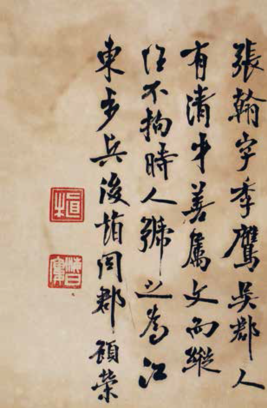 張翰字季鷹吳郡人
有清才善屬文而縱
任不拘時人號之為江
東步兵後謁同郡顧榮